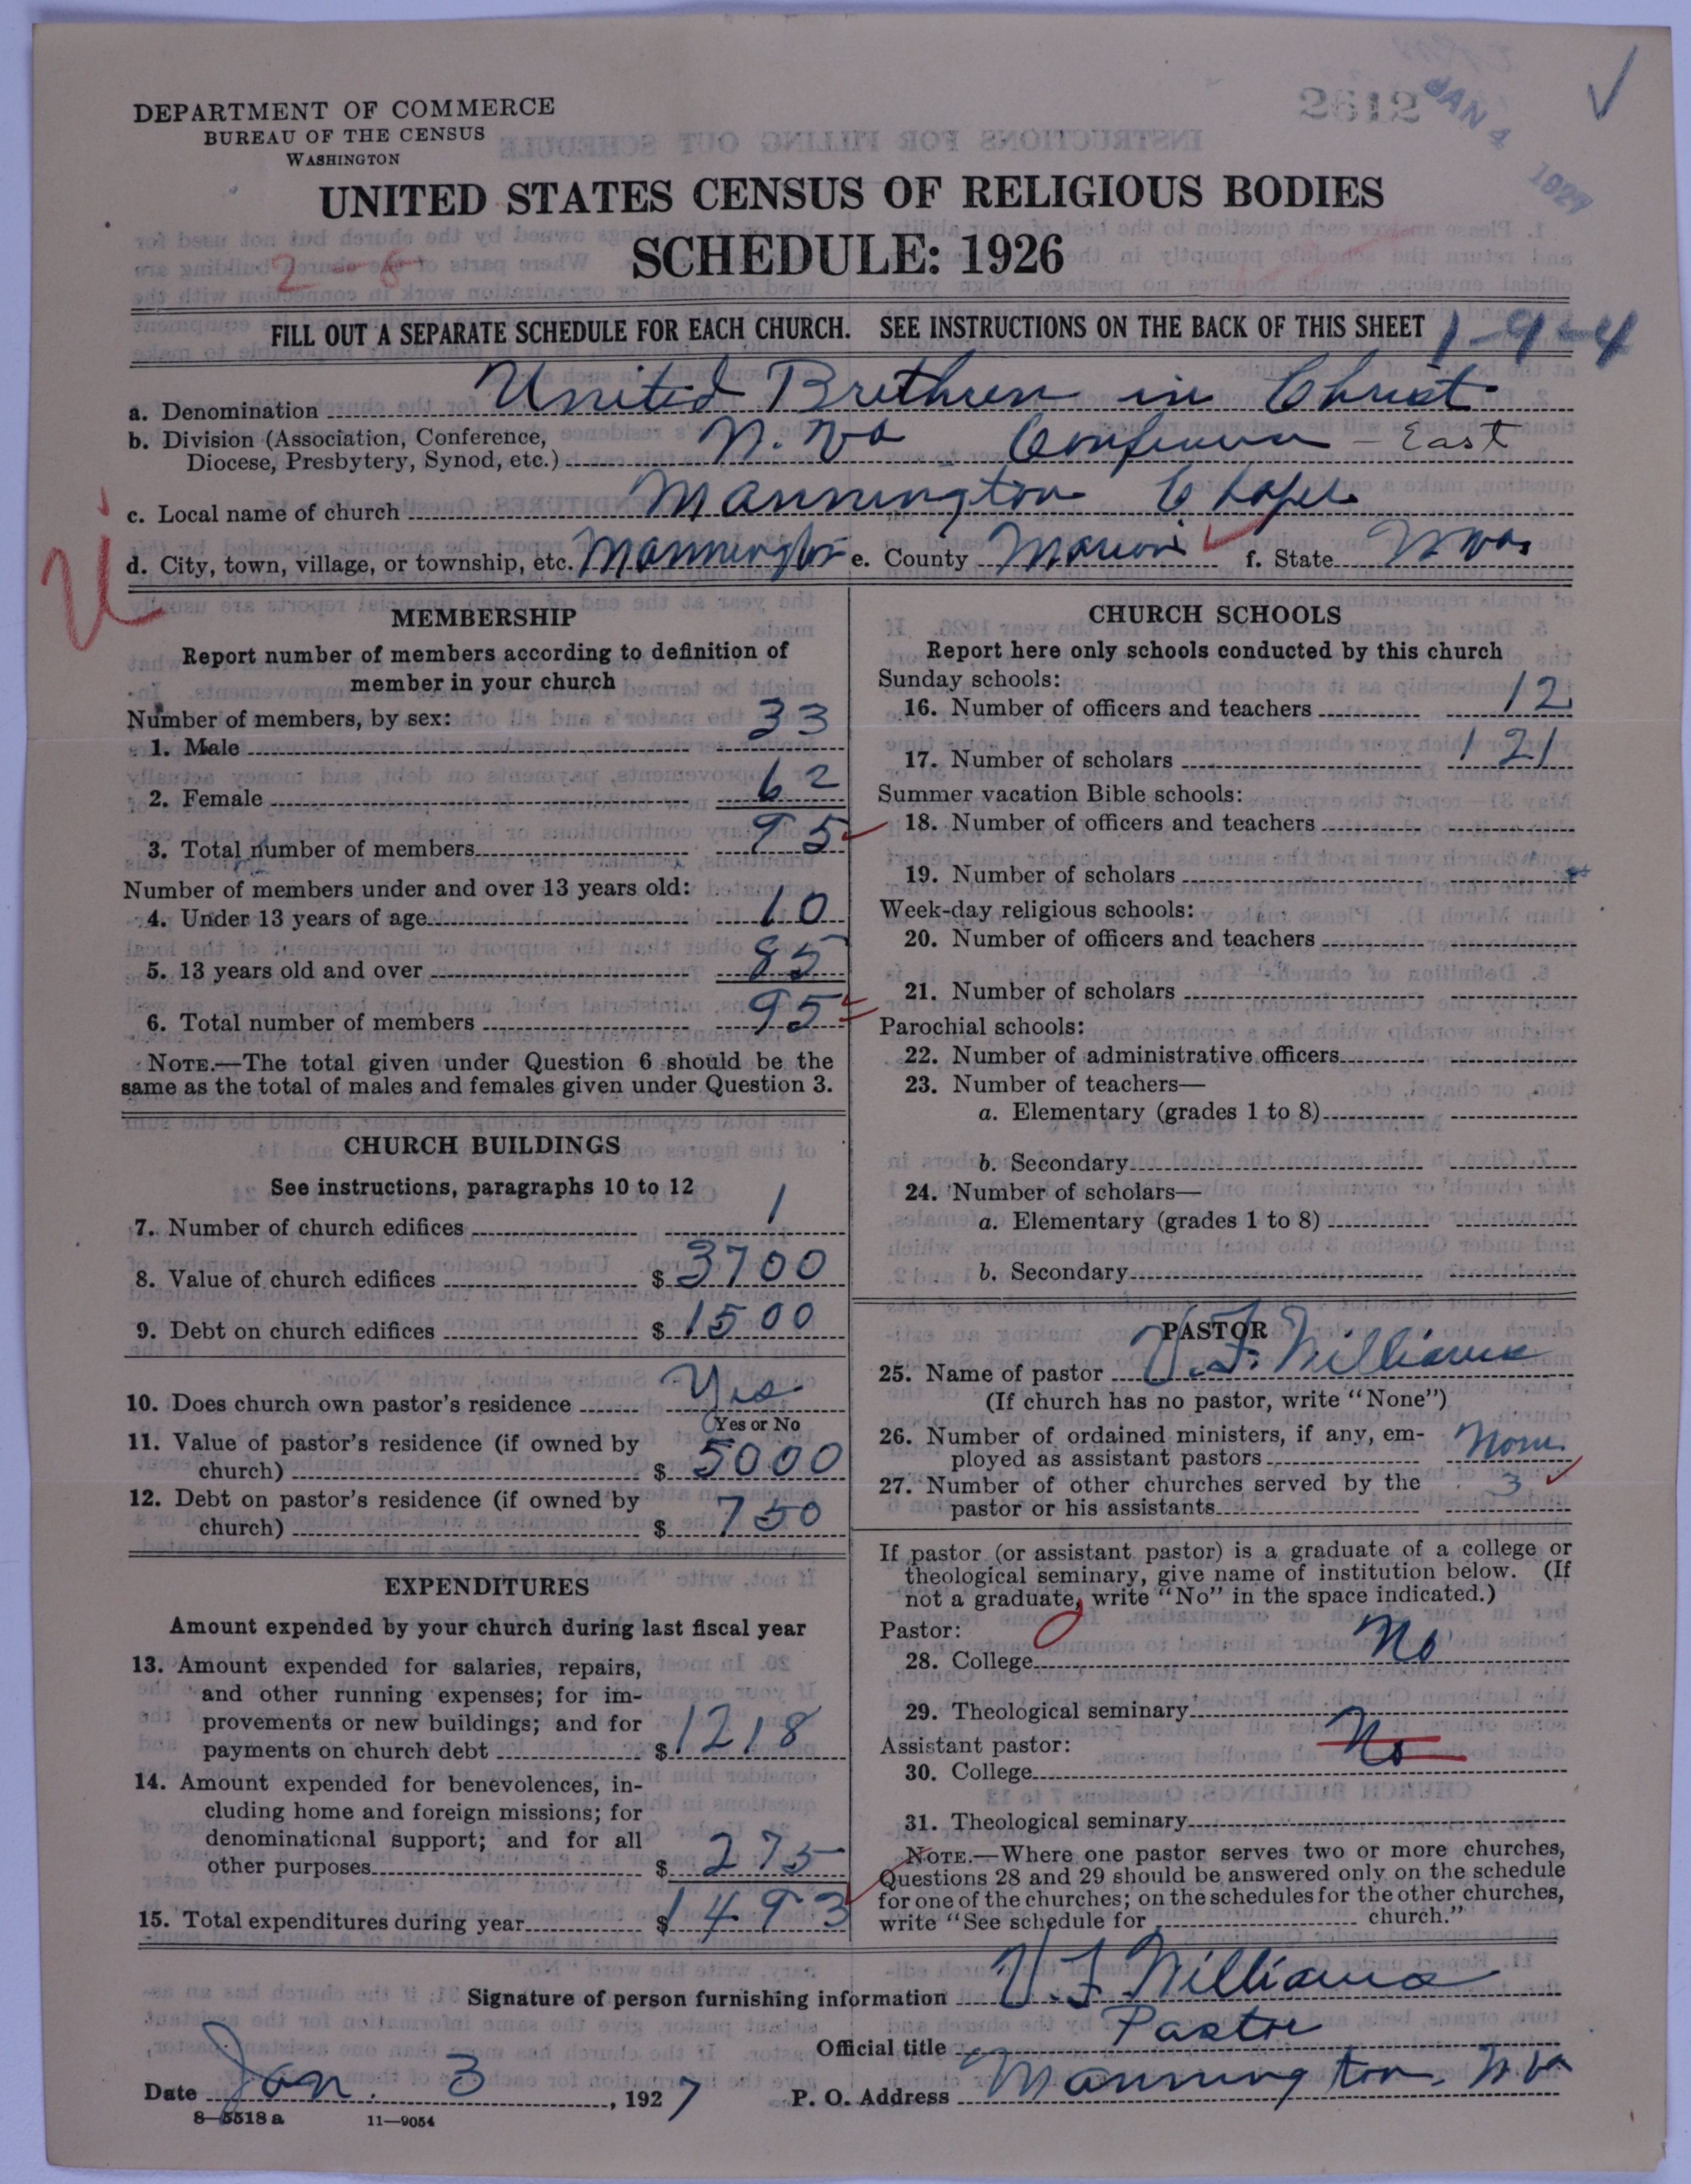 2612
JAN 4 1927
DEPARTMENT OF COMMERCE
BUREAU OF THE CENSUS
WASHINGTON
UNITED STATES CENSUS OF RELIGIOUS BODIES
SCHEDULE: 1926
2-8
FILL OUT A SEPARATE SCHEDULE FOR EACH CHURCH. SEE INSTRUCTIONS ON THE BACK OF THIS SHEET 1-9-4
a. Denomination United Brethren in Christ
b. Division (Association, Conference,
Diocese, Presbytery, Synod, etc.) W. Va Conference - East
c. Local name of church Mannington Chapel
d. City, town, village, or township, etc. Mannington e. County Marion f. State W Va.
MEMBERSHIP
Report number of members according to definition of
member in your church
Number of members, by sex:
1. Male 33
2. Female 62
3. Total number of members 95
Number of members under and over 13 years old:
4. Under 13 years of age 10
5. 13 years old and over 85
6. Total number of members 95
NOTE.—The total given under Question 6 should be the
same as the total of males and females given under Question 3.
CHURCH BUILDINGS
See instructions, paragraphs 10 to 12
7. Number of church edifices 1
8. Value of church edifices $ 3700
9. Debt on church edifices $ 1500
10. Does church own pastor's residence Yes
Yes or No
11. Value of pastor's residence (if owned by
church) $ 5000
12. Debt on pastor's residence (if owned by
church) $ 750
EXPENDITURES
Amount expended by your church during last fiscal year
13. Amount expended for salaries, repairs,
and other running expenses; for im-
provements or new buildings; and for
payments on church debt $ 1218
14. Amount expended for benevolences, in-
cluding home and foreign missions; for
denominational support; and for all
other purposes $ 275
15. Total expenditures during year $ 1493
CHURCH SCHOOLS
Report here only schools conducted by this church
Sunday schools:
16. Number of officers and teachers 12
17. Number of scholars 121
Summer vacation Bible schools:
18. Number of officers and teachers
19. Number of scholars
Week-day religious schools:
20. Number of officers and teachers
21. Number of scholars
Parochial schools:
22. Number of administrative officers
23. Number of teachers—
a. Elementary (grades 1 to 8)
b. Secondary
24. Number of scholars—
a. Elementary (grades 1 to 8)
b. Secondary
PASTOR
25. Name of pastor V. F. Williams
(If church has no pastor, write "None")
26. Number of ordained ministers, if any, em-
ployed as assistant pastors None
27. Number of other churches served by the
pastor or his assistants 3
If pastor (or assistant pastor) is a graduate of a college or
theological seminary, give name of institution below. (If
not a graduate, write "No" in the space indicated.)
Pastor:
28. College No
29. Theological seminary
Assistant pastor: No
30. College
31. Theological seminary
NOTE.—Where one pastor serves two or more churches,
Questions 28 and 29 should be answered only on the schedule
for one of the churches; on the schedules for the other churches,
write "See schedule for church."
Signature of person furnishing information V F Williams
Official title Pastor
Date Jan. 3, 1927 P. O. Address Mannington, W Va
8-5518a 11-9054